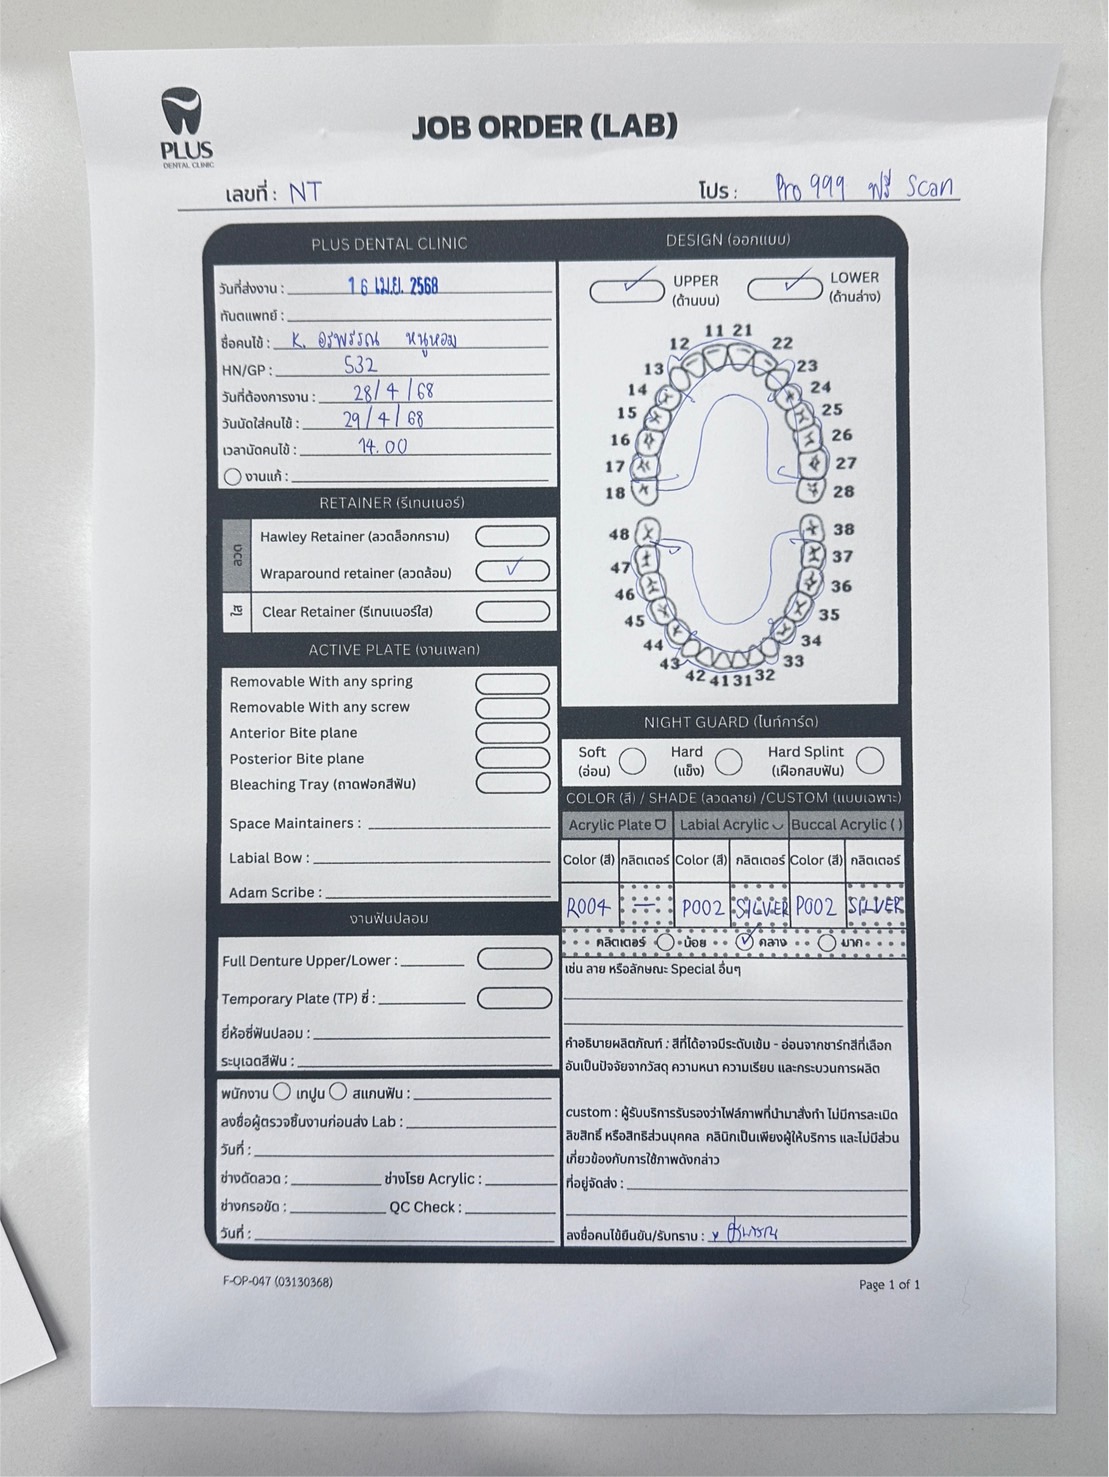 PLUS
DENTAL CLINIC
JOB ORDER (LAB)
เลขที่ : NT
โปร : Pro 999 ฟรี scan
PLUS DENTAL CLINIC
วันที่ส่งงาน : 16 เม.ย. 2568
ทันตแพทย์ :
ชื่อคนไข้ : K. อรพรรณ หนูหอม
HN/GP : 532
วันที่ต้องการงาน : 28/4/68
วันนัดใส่คนไข้ : 29/4/68
เวลานัดคนไข้ : 14.00
งานแก้ :
RETAINER (รีเทนเนอร์)
ลวด
Hawley Retainer (ลวดล็อกกราม)
Wraparound retainer (ลวดล้อม) ✓
ใส
Clear Retainer (รีเทนเนอร์ใส)
ACTIVE PLATE (งานเพลท)
Removable With any spring
Removable With any screw
Anterior Bite plane
Posterior Bite plane
Bleaching Tray (ถาดฟอกสีฟัน)
Space Maintainers :
Labial Bow :
Adam Scribe :
งานฟันปลอม
Full Denture Upper/Lower :
Temporary Plate (TP) ซี่ :
ยี่ห้อซี่ฟันปลอม :
ระบุเฉดสีฟัน :
พนักงาน เทปูน สแกนฟัน :
ลงชื่อผู้ตรวจชิ้นงานก่อนส่ง Lab :
วันที่ :
ช่างดัดลวด : ช่างโรย Acrylic :
ช่างกรอขัด : QC Check :
วันที่ :
DESIGN (ออกแบบ)
✓ UPPER
(ด้านบน)
✓ LOWER
(ด้านล่าง)
11 21
12 22
13 23
14 24
15 25
16 26
17 27
18 28
48 38
47 37
46 36
45 35
44 34
43 33
42 41 31 32
NIGHT GUARD (ไนท์การ์ด)
Soft
(อ่อน)
Hard
(แข็ง)
Hard Splint
(เฝือกสบฟัน)
COLOR (สี) / SHADE (ลวดลาย) /CUSTOM (แบบเฉพาะ)
Acrylic Plate Labial Acrylic Buccal Acrylic ( )
Color (สี) กลิตเตอร์ Color (สี) กลิตเตอร์ Color (สี) กลิตเตอร์
R004 — P002 SILVER P002 SILVER
กลิตเตอร์ น้อย ✓ กลาง มาก
เช่น ลาย หรือลักษณะ Special อื่นๆ
คำอธิบายผลิตภัณฑ์ : สีที่ได้อาจมีระดับเข้ม - อ่อนจากชาร์ทสีที่เลือก
อันเป็นปัจจัยจากวัสดุ ความหนา ความเรียบ และกระบวนการผลิต
custom : ผู้รับบริการรับรองว่าไฟล์ภาพที่นำมาสั่งทำ ไม่มีการละเมิด
ลิขสิทธิ์ หรือสิทธิส่วนบุคคล คลินิกเป็นเพียงผู้ให้บริการ และไม่มีส่วน
เกี่ยวข้องกับการใช้ภาพดังกล่าว
ที่อยู่จัดส่ง :
ลงชื่อคนไข้ยืนยัน/รับทราบ : x
F-OP-047 (03130368)
Page 1 of 1